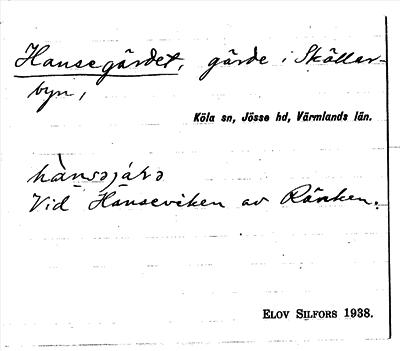 Hansegärdet, gärde i Skållar-
byn,
Köla sn, Jösse hd, Värmlands län.
hànsəjáɽə
Vid Hanseviken av Ränken.
ELOV SILFORS 1938.